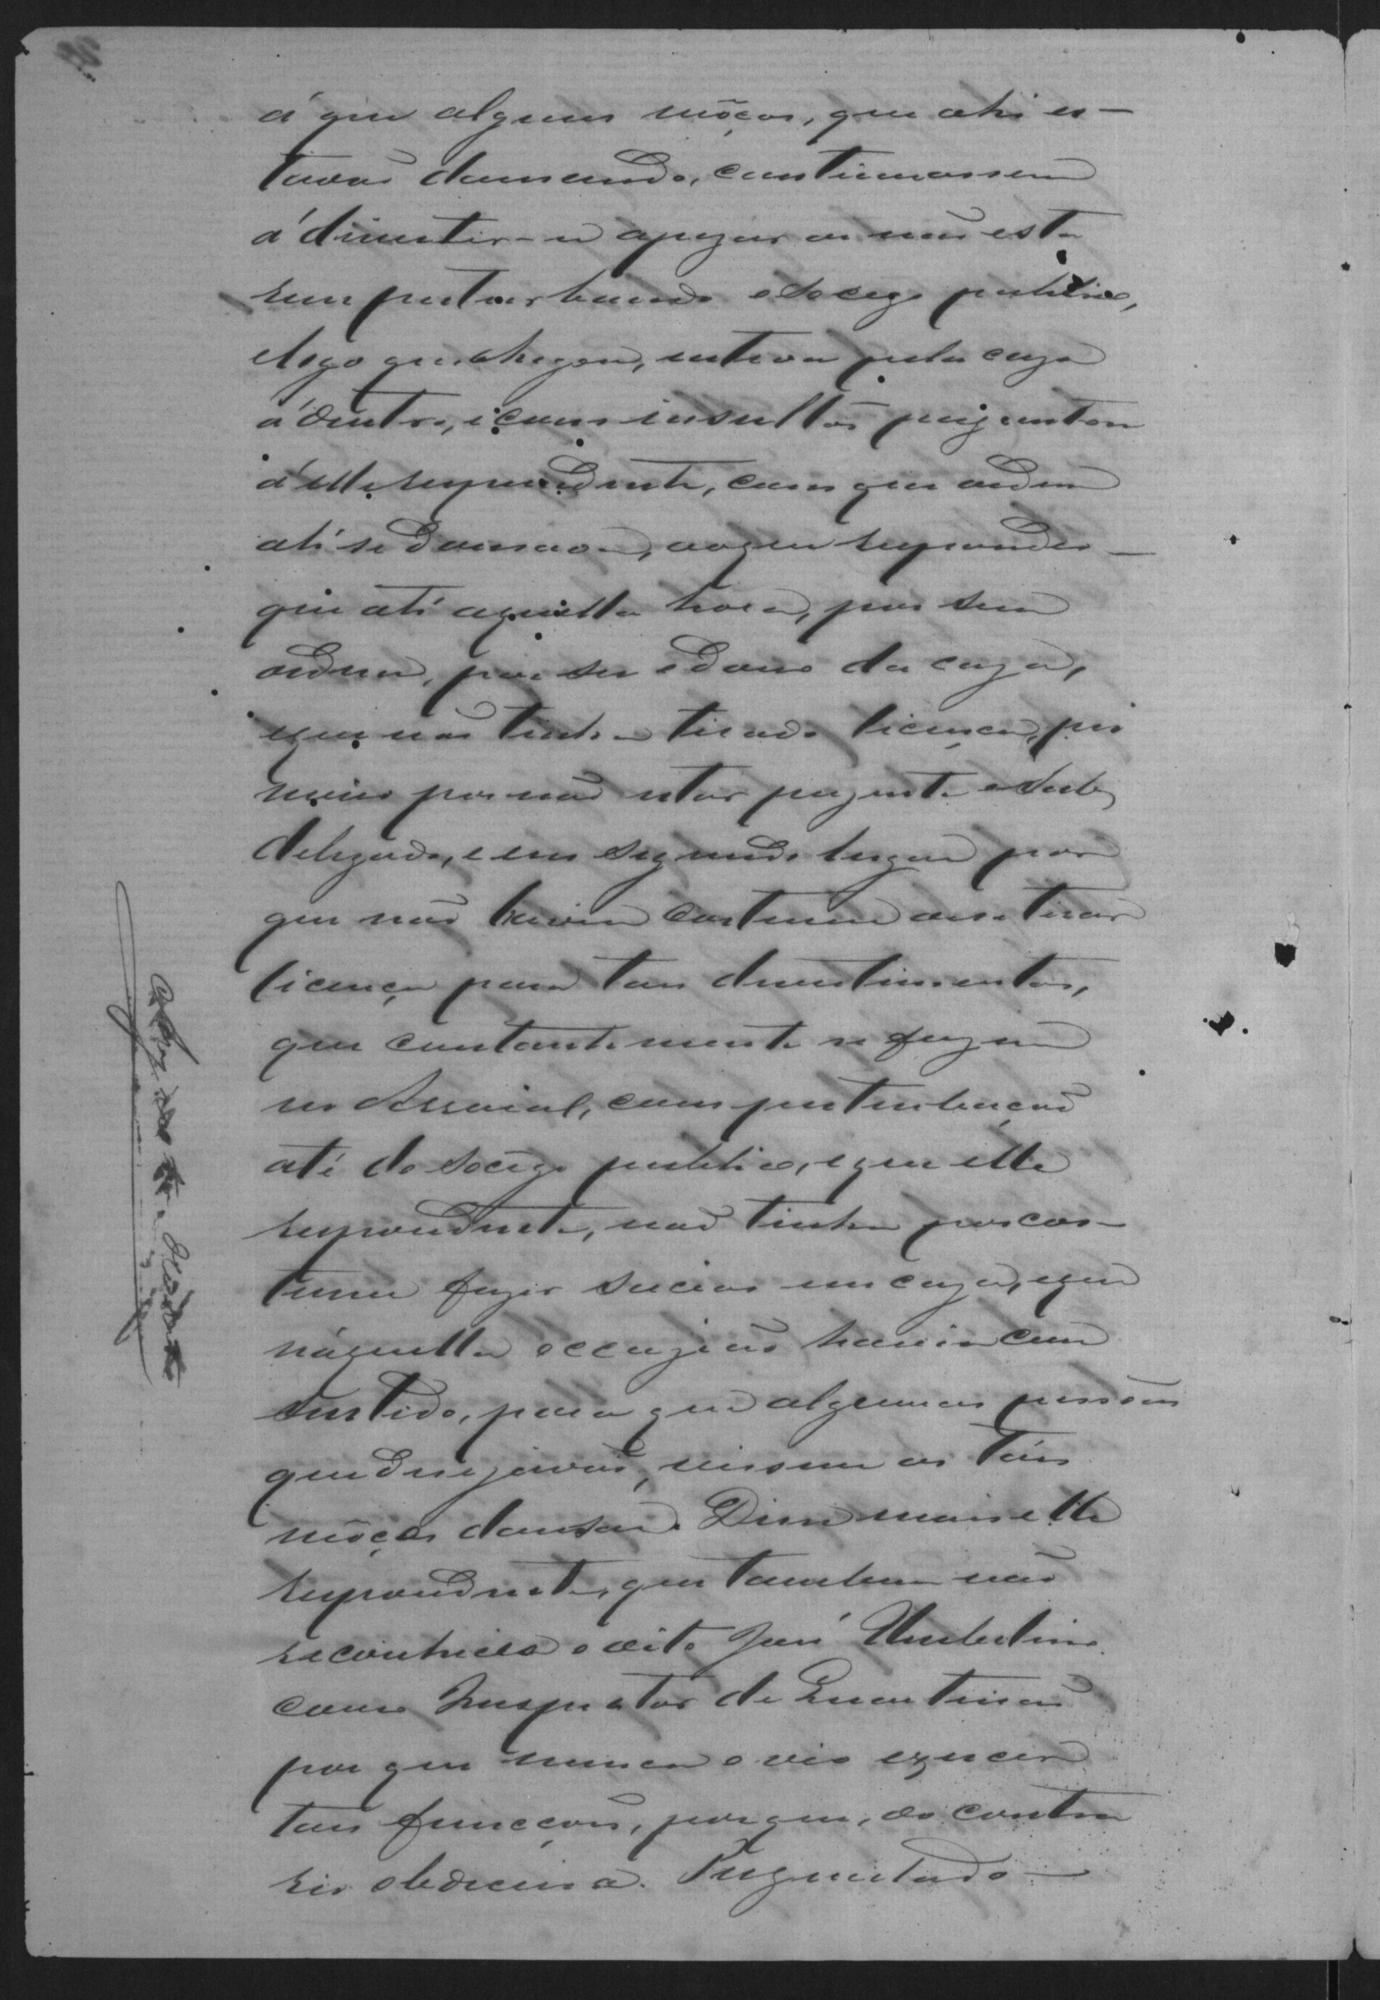 á que alguns mòços, que ahi es-
tavaõ dansando, continuassem
á divertir-se apezar de naõ esta
rem perturbando o socego publico,
e logo que chegou, entrou pela caza
á dentro, e com insultos perguntou
á elle respondente, com que ordem
ali se dansava, ao que respondeo
que até aquella hora, por sua
ordem, por ser o dono da caza,
e que naõ tinha tirado licença, pri
meiro por naõ estar prezente o Sub
delegado, e em segundo lugar por
que naõ havia costume de se tirar
licença para taes divertimentos,
que constantemente se fazem
no Arraial, com perturbaçaõ
até do socego publico, e que elle
respondente, naõ tinha por cos-
tume fazer sucias em caza, e que
náquella occaziaõ havia con
sentido, para que algumas pessôas
que dezejavaõ, vissem os táes
mòços dansar. Disse mais elle
respondente, que tambem naõ
reconhecia o dito José Umbelino
como Inspector de Quarteiraõ
por que nunca o vio exercer
taes funcçoes, porque, do contra
rio obdecia a. Perguntado